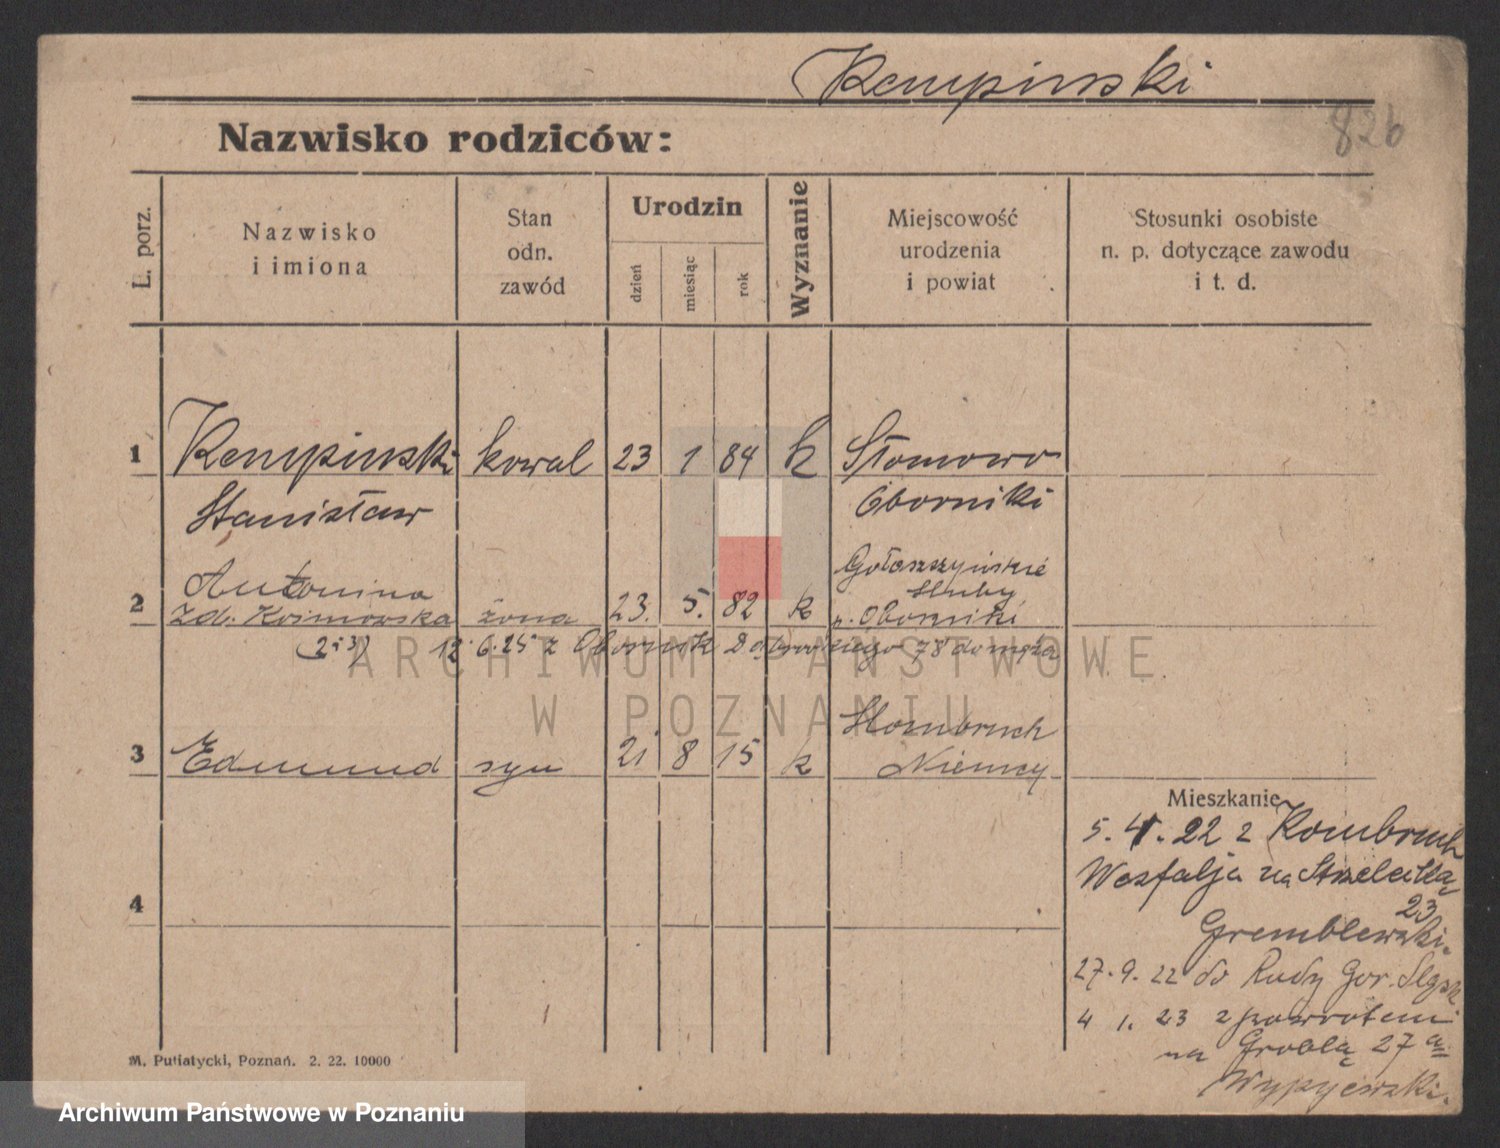 Kempinski
826
Nazwisko rodziców:
L. porz.
Nazwisko
i imiona
Stan
odn.
zawód
Urodzin
dzień
miesiąc
rok
Wyznanie
Miejscowość
urodzenia
i powiat
Stosunki osobiste
n. p. dotyczące zawodu
i t. d.
1 Kempinski kowal 23 1 84 k Słomowo
Stanisław Oborniki
Antonina Gołaszyńskie
Huby
2 zd. Koźmowska żona 23. 5. 82 k p. Oborniki
2 i 3) 12 6. 25 z Obornik Dąbrowskiego 78 do męża
Hombruch
3 Edmund syn 21 8 15 k Niemcy
Mieszkanie
5. 4. 22 z Hombruch
Westfalja na Strzelecką
23
Gremblewski.
4
27. 9. 22 do Rudy Gor. Śląsk
4 1. 23 z powrotem
na Groblą 27 a
M. Putiatycki, Poznań. 2. 22. 10000
ARCHIWUM PAŃSTWOWE
W POZNANIU
Archiwum Państwowe w Poznaniu